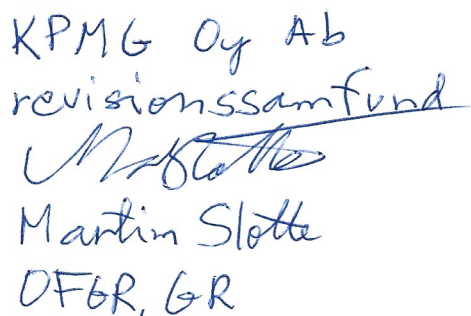 KPMG Oy Ab
revisionssamfund
Martin Slotte
OFGR, GR